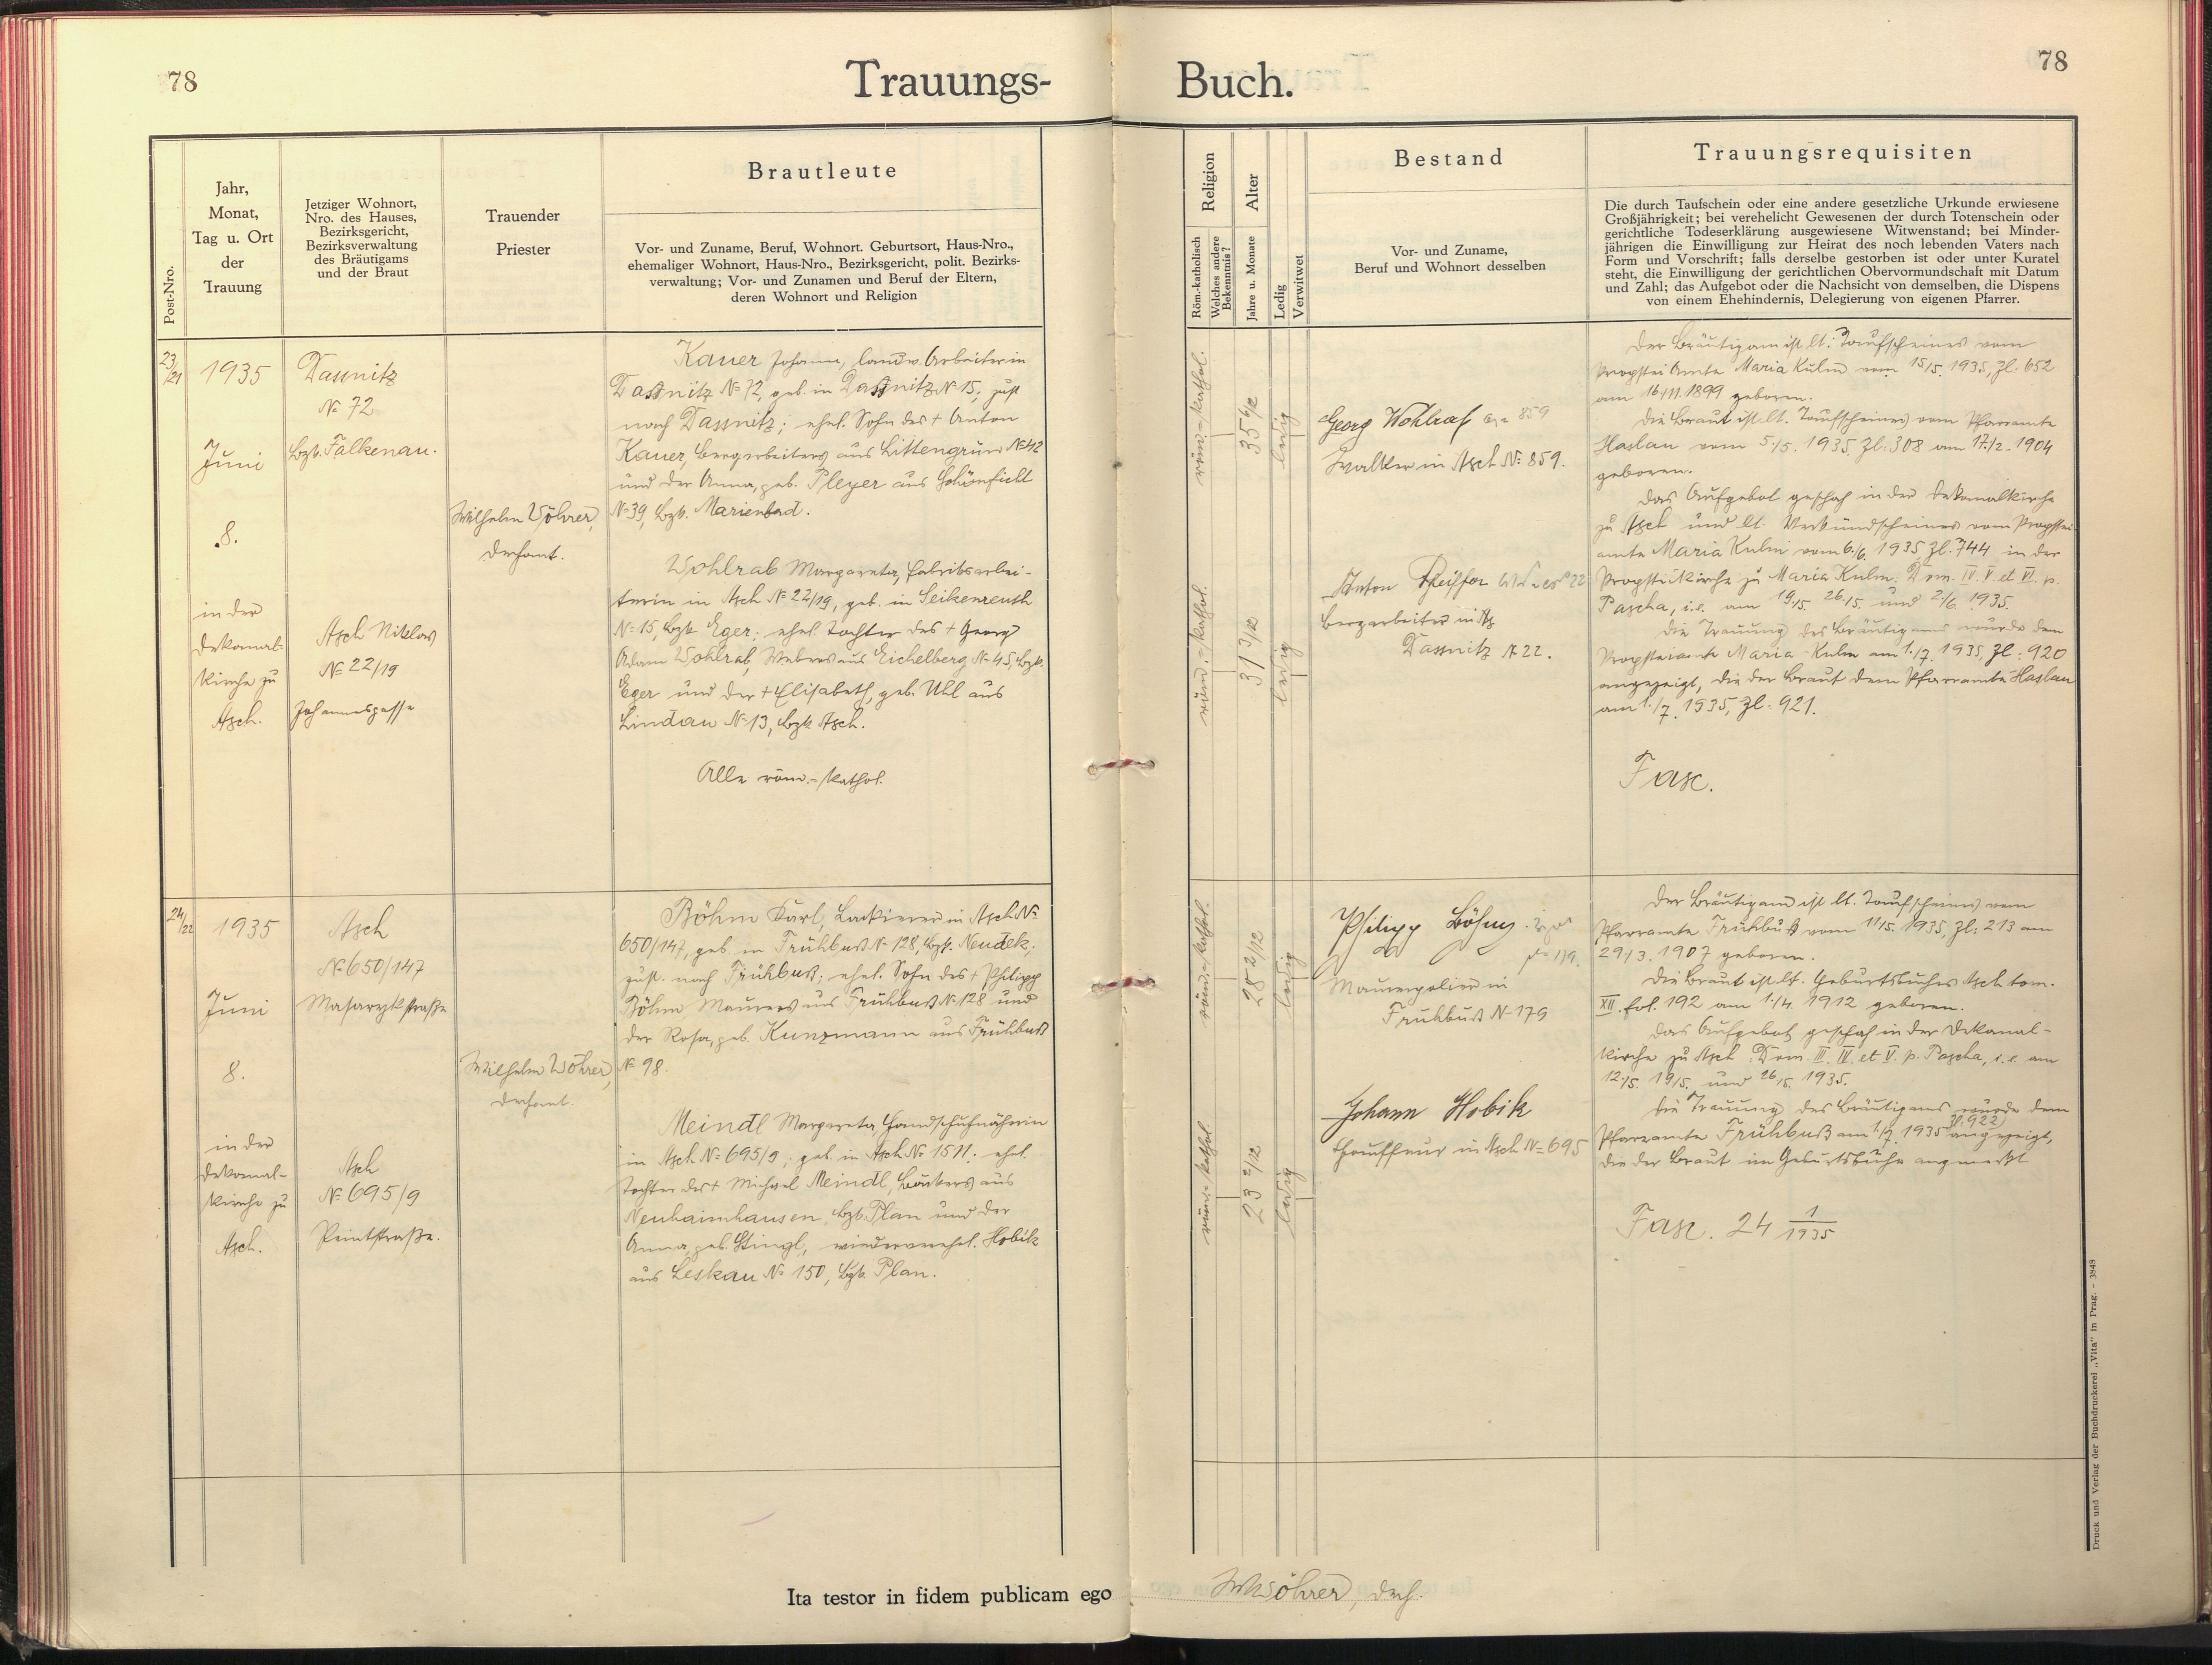 78
Trauungs-
Post-Nro.
Jahr,
Monat,
Tag u. Ort
der
Trauung
Jetziger Wohnort,
Nro. des Hauses,
Bezirksgericht,
Bezirksverwaltung
des Bräutigams
und der Braut
Trauender
Priester
Brautleute
Vor- und Zuname, Beruf, Wohnort. Geburtsort, Haus-Nro.,
ehemaliger Wohnort, Haus-Nro., Bezirksgericht, polit. Bezirks-
verwaltung; Vor- und Zunamen und Beruf der Eltern,
deren Wohnort und Religion
23/21
1935
Juni
8.
in der
Dekanal-
kirche zu
Asch.
Dassnitz
№ 72
Bzk. Falkenau.
Asch Niklas
№ 22/19
Johannesgasse
Wilhelm Wöhrer,
Dechant.
Kauer Johann, landw. Arbeiter in
Dassnitz № 72, geb. in Dassnitz № 15, zust.
nach Dassnitz; ehel. Sohn des + Anton
Kauer, Bergarbeiters aus Littengrün № 42
und der Anna, geb. Pleyer aus Schönficht
№ 39, Bzk. Marienbad.
Wohlrab Margareta, Fabriksarbei-
terin in Asch № 22/19, geb. in Seikenreuth
№ 15, Bzk. Eger; ehel. Tochter des + Georg
Adam Wohlrab, Webers aus Eichelberg № 45, Bzk.
Eger und der + Elisabeth, geb. Uhl aus
Lindau № 13, Bzk. Asch.
Alle röm.-kathol.
24/22
1935
Juni
8.
in der
Dekanal-
kirche zu
Asch.
Asch
№ 650/147
Masarykstraße
Asch
№ 695/9
Peintstraße.
Wilhelm Wöhrer,
Dechant.
Böhm Karl, Lackierer in Asch №
650/147, geb. in Frühbuß № 128, Bzk. Neudek;
zust. nach Frühbuß; ehel. Sohn des + Philipp
Böhm Maurers aus Frühbuß № 128 und
der Rosa, geb. Kunzmann aus Frühbuß
№ 98.
Meindl Margareta, Handschuhnäherin
in Asch № 695/9; geb. in Asch № 1511; ehel.
Tochter des + Michael Meindl, Bäckers aus
Neuhaimhausen, Bzk. Plan und der
Anna, geb. Stingl, wiederverehel. Hobik
aus Leskau № 150, Bzk. Plan.
Ita testor in fidem publicam ego
Buch.
78
Religion
Röm.-katholisch
Welches andere
Bekenntnis?
Alter
Jahre u. Monate
Ledig
Verwitwet
Bestand
Vor- und Zuname,
Beruf und Wohnort desselben
Trauungsrequisiten
Die durch Taufschein oder eine andere gesetzliche Urkunde erwiesene
Großjährigkeit; bei verehelicht Gewesenen der durch Totenschein oder
gerichtliche Todeserklärung ausgewiesene Witwenstand; bei Minder-
jährigen die Einwilligung zur Heirat des noch lebenden Vaters nach
Form und Vorschrift; falls derselbe gestorben ist oder unter Kuratel
steht, die Einwilligung der gerichtlichen Obervormundschaft mit Datum
und Zahl; das Aufgebot oder die Nachsicht von demselben, die Dispens
von einem Ehehindernis, Delegierung von eigenen Pfarrer.
röm.-kathol.
35 6/12
ledig
röm.-kathol.
31 3/12
ledig
Georg Wohlrab 859
Walker in Asch № 859.
Anton Pfeiffer
Bergarbeiter in
Dassnitz № 22.
Der Bräutigam ist lt. Taufscheines vom
Propsteiamte Maria Kulm vom 15/5. 1935, Zl. 652
am 16/11. 1899 geboren.
Die Braut ist lt. Taufscheines vom Pfarramte
Haslau vom 5./5. 1935. Zl: 308 am 17./2. 1904
geboren.
Das Aufgebot geschah in der Dekanalkirche
zu Asch und lt. Verkündscheines vom Propstei-
amte Maria Kulm vom 6./6. 1935 Zl. 744 in der
Propsteikirche zu Maria Kulm: Dom. IV. V. et VI. p.
Pascha, i.e. am 19./5. 26./5. und 2./6. 1935.
Die Trauung des Bräutigams wurde dem
Propsteiamte Maria Kulm am 1./7. 1935, Zl: 920
angezeigt, die der Braut dem Pfarramte Haslau
am 1./7. 1935, Zl. 921.
Fasc.
röm.-kathol.
28 2/12
ledig
röm.-kathol.
23 2/12
ledig
Philipp Böhm
Maurerpolier in
Frühbuß № 179
Johann Hobik
Chauffeur in Asch № 695
Der Bräutigam ist lt. Taufscheines vom
Pfarramte Frühbuß vom 11/5. 1935, Zl: 213 am
29./3. 1907 geboren.
Die Braut ist lt. Geburtsbuches Asch tom.
XII. fol. 192 am 1./4. 1912 geboren.
Das Aufgebot geschah in der Dekanal-
kirche zu Asch: Dom. III. IV. et V. p. Pascha, i.e. am
12./5. 19/5. und 26/5. 1935.
Die Trauung des Bräutigams wurde dem
Pfarramte Frühbuß am 1./7. 1935 Zl. 922) angezeigt,
die der Braut im Geburtsbuche angemerkt
Fasc. 24 1/1935
WWöhrer, Dech.
Druck und Verlag der Buchdruckerei „Vita" in Prag. - 3848